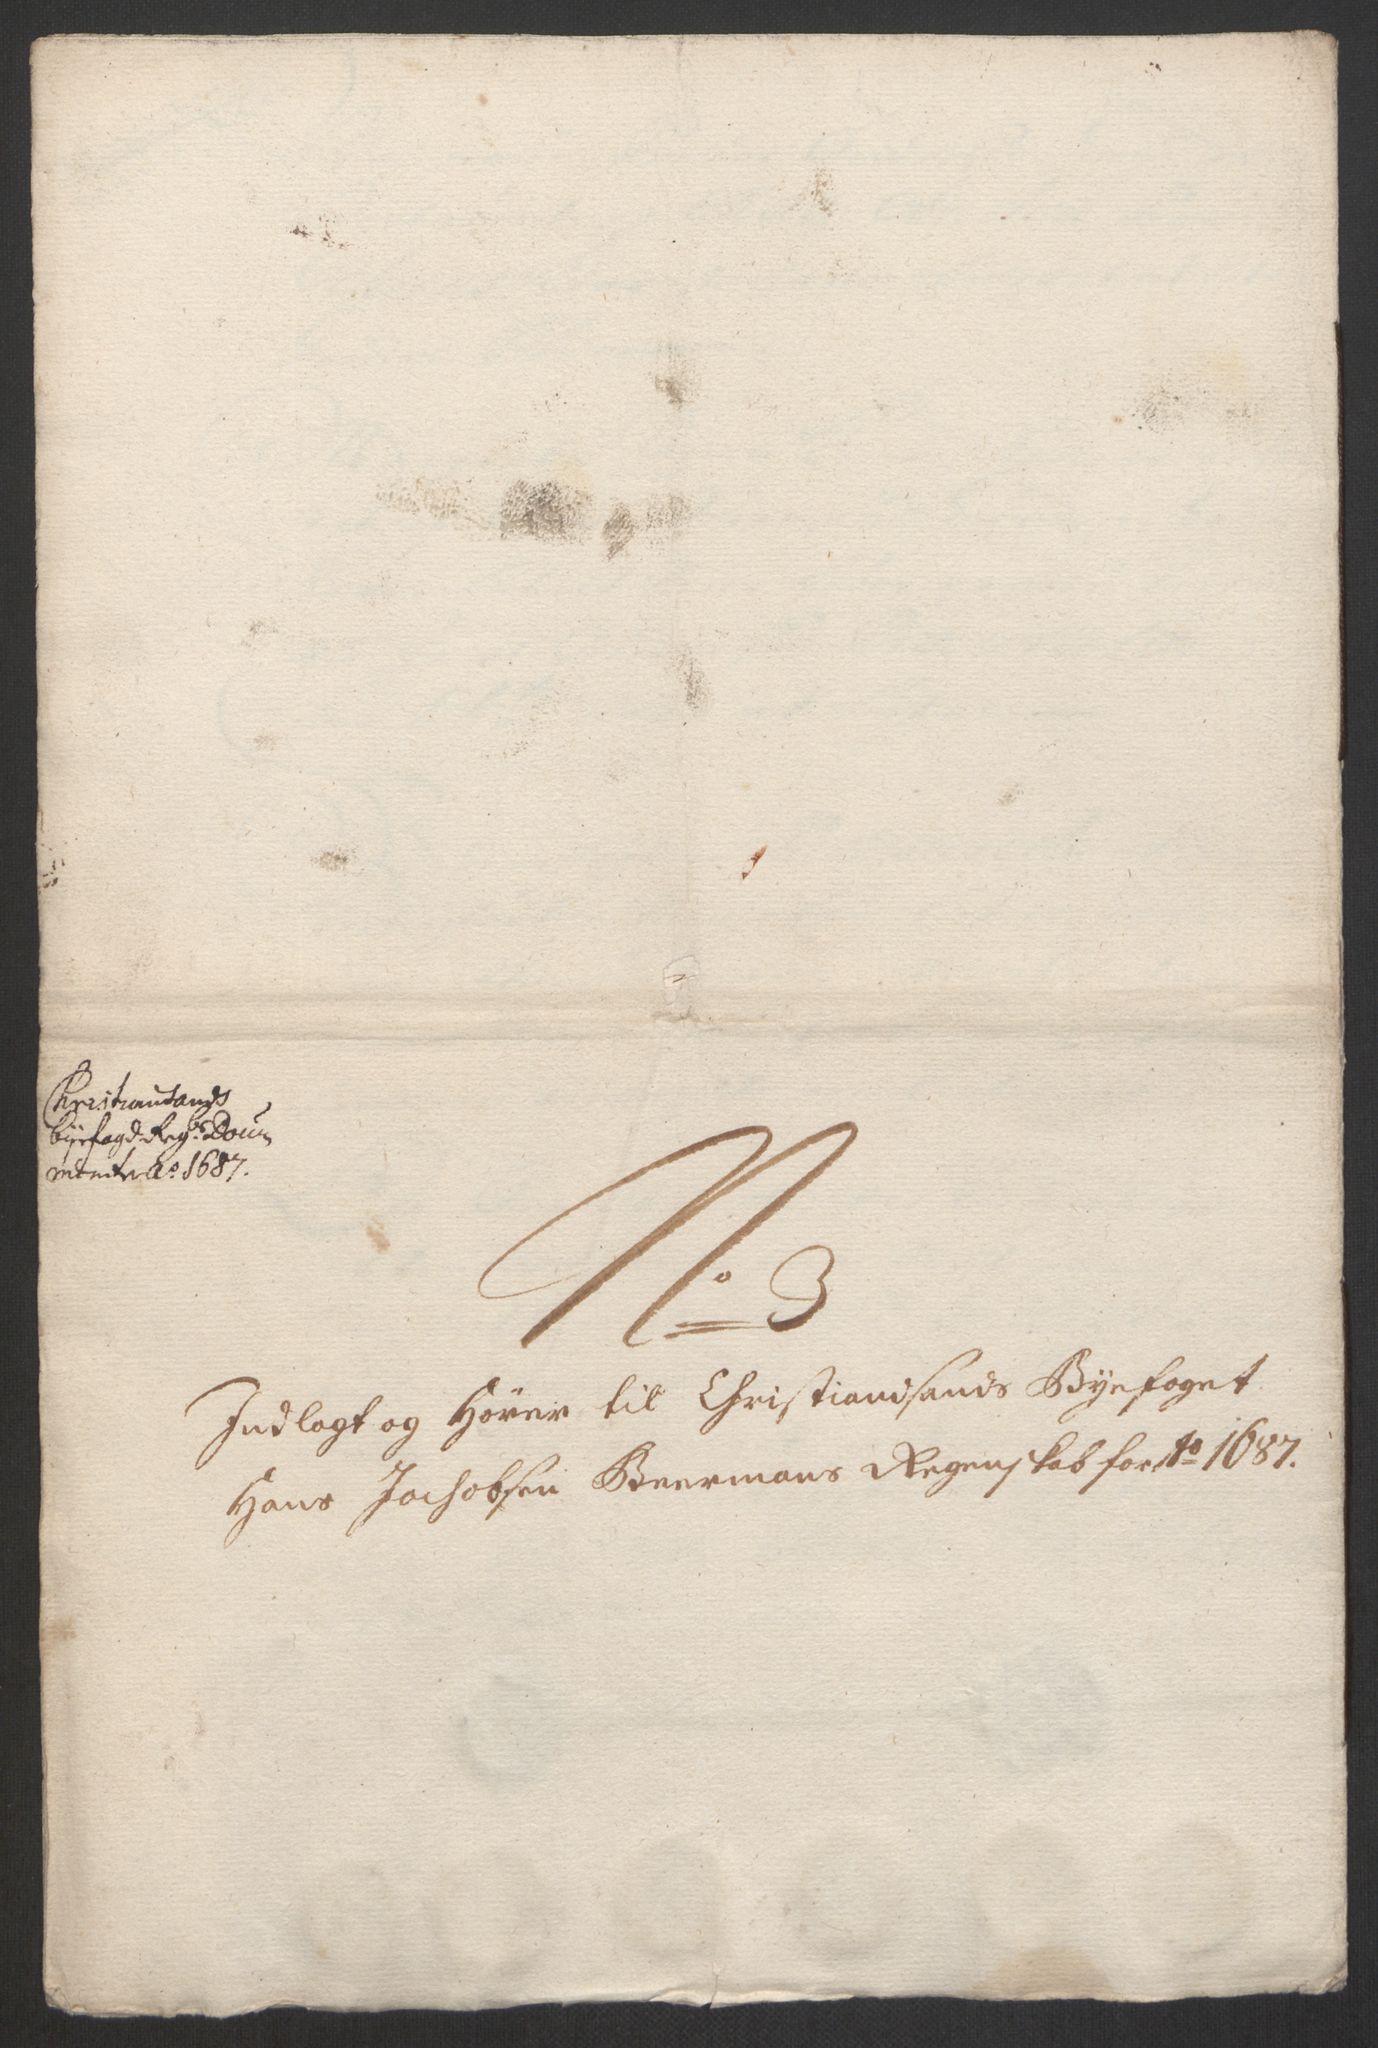 Christiansands
byefogd. Regs. Docu-
menter Ao. 1687.
No. 3
Indlagt og Hörer til Christiandsands Byefoget
Hans Jachobsen Beermans Regenskab for Ao 1687.